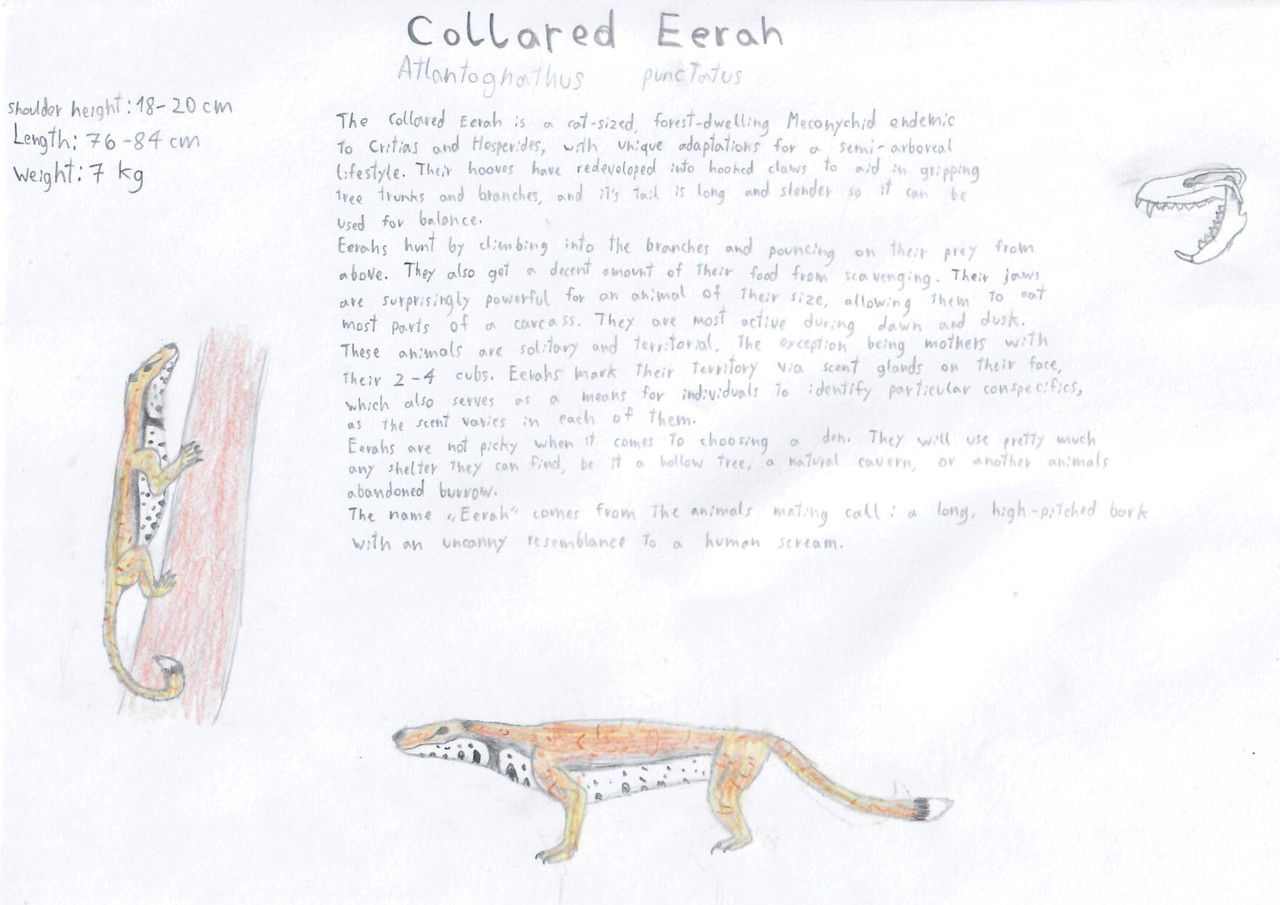 Collared Eerah
Atlantognathus punctatus
shoulder height: 18-20 cm
Length: 76-84 cm
Weight: 7 kg
The Collared Eerah is a cat-sized, forest-dwelling Mesonychid endemic
to Critias and Hesperides, with unique adaptations for a semi-arboreal
lifestyle. Their hooves have redeveloped into hooked claws to aid in gripping
tree trunks and branches, and it's tail is long and slender so it can be
used for balance.
Eerahs hunt by climbing into the branches and pouncing on their prey from
above. They also get a decent amount of their food from scavenging. Their jaws
are surprisingly powerful for an animal of their size, allowing them to eat
most parts of a carcass. They are most active during dawn and dusk.
These animals are solitary and territorial, the exception being mothers with
their 2-4 cubs. Eerahs mark their territory via scent glands on their face,
which also serves as a means for individuals to identify particular conspecifics,
as the scent varies in each of them.
Eerahs are not picky when it comes to choosing a den. They will use pretty much
any shelter they can find, be it a hollow tree, a natural cavern, or another animals
abandoned burrow.
The name „Eerah“ comes from the animals mating call: a long, high-pitched bark
with an uncanny resemblance to a human scream.